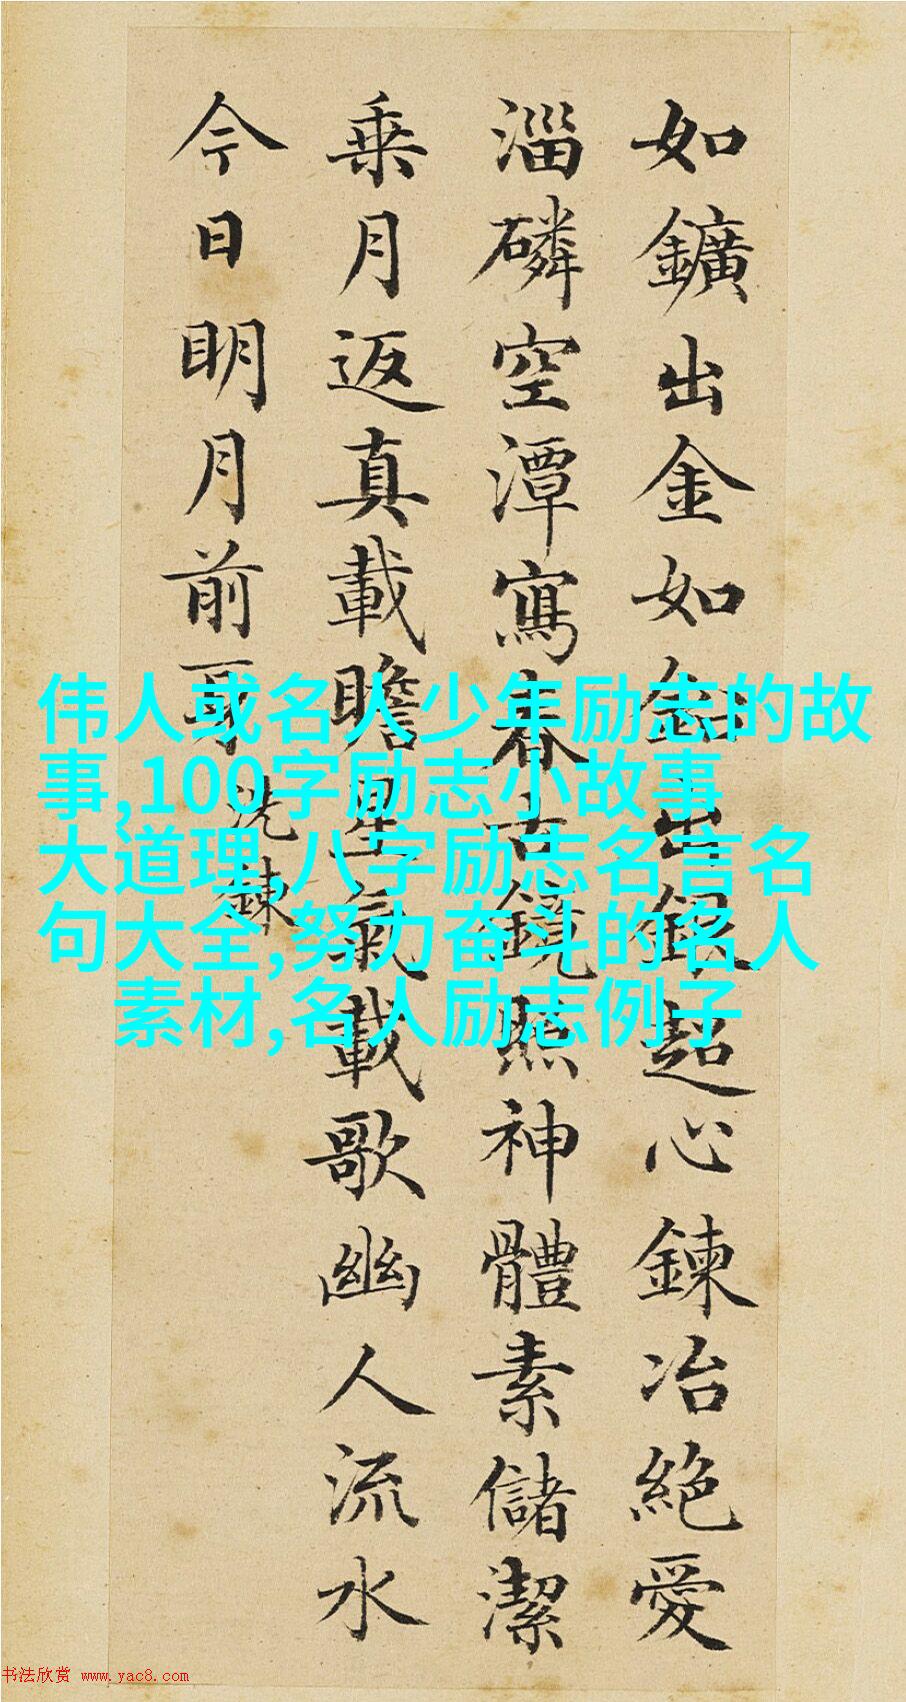 如鑛出金如鉛出銀超心鍊冶絶愛
淄磷空潭寫春古鏡照神體素儲潔
乗月返真載瞻星氣載歌幽人流水
今日明月前身
洗鍊
伟人或名人少年励志的故
事,100字励志小故事
大道理,八字励志名言名
句大全,努力奋斗的名人
素材,名人励志例子
书法欣赏 www.yac8.com